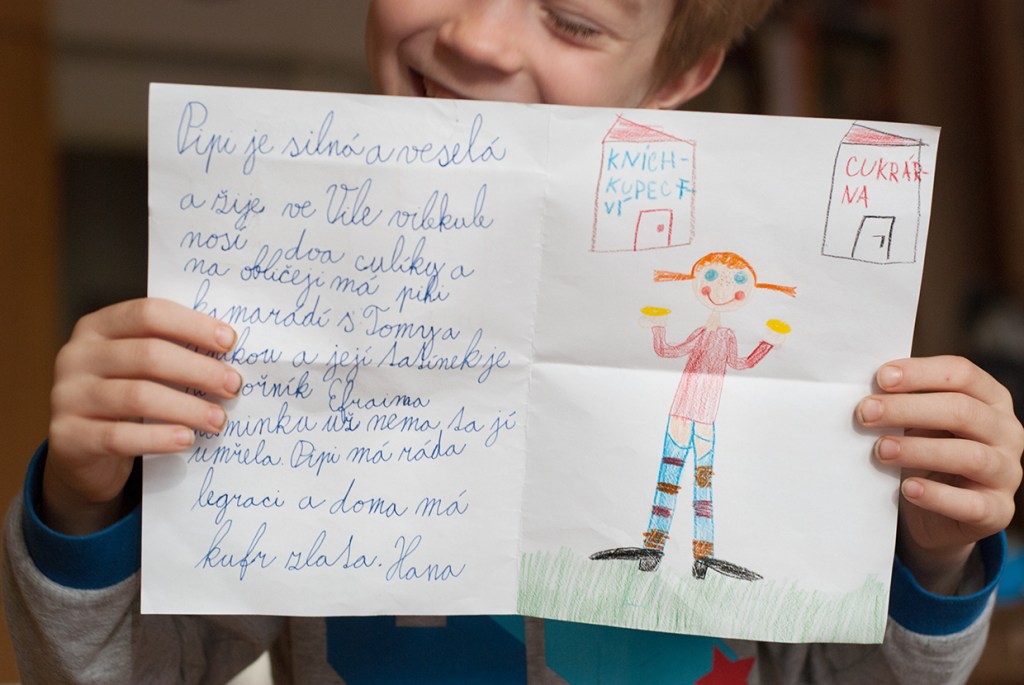 Pipi je silná a veselá
a žije ve Vile vilekule
nosí dva culíky a
na obličeji má pihi
kamarádí s Tomy a
a její tatínek je
Efraima
maminku už nema, ta jí
umřela. Pipi má ráda
legraci a doma má
kufr zlata. Hana
KNICH-
KUPECT
VÍ
CUKRÁR-
NA